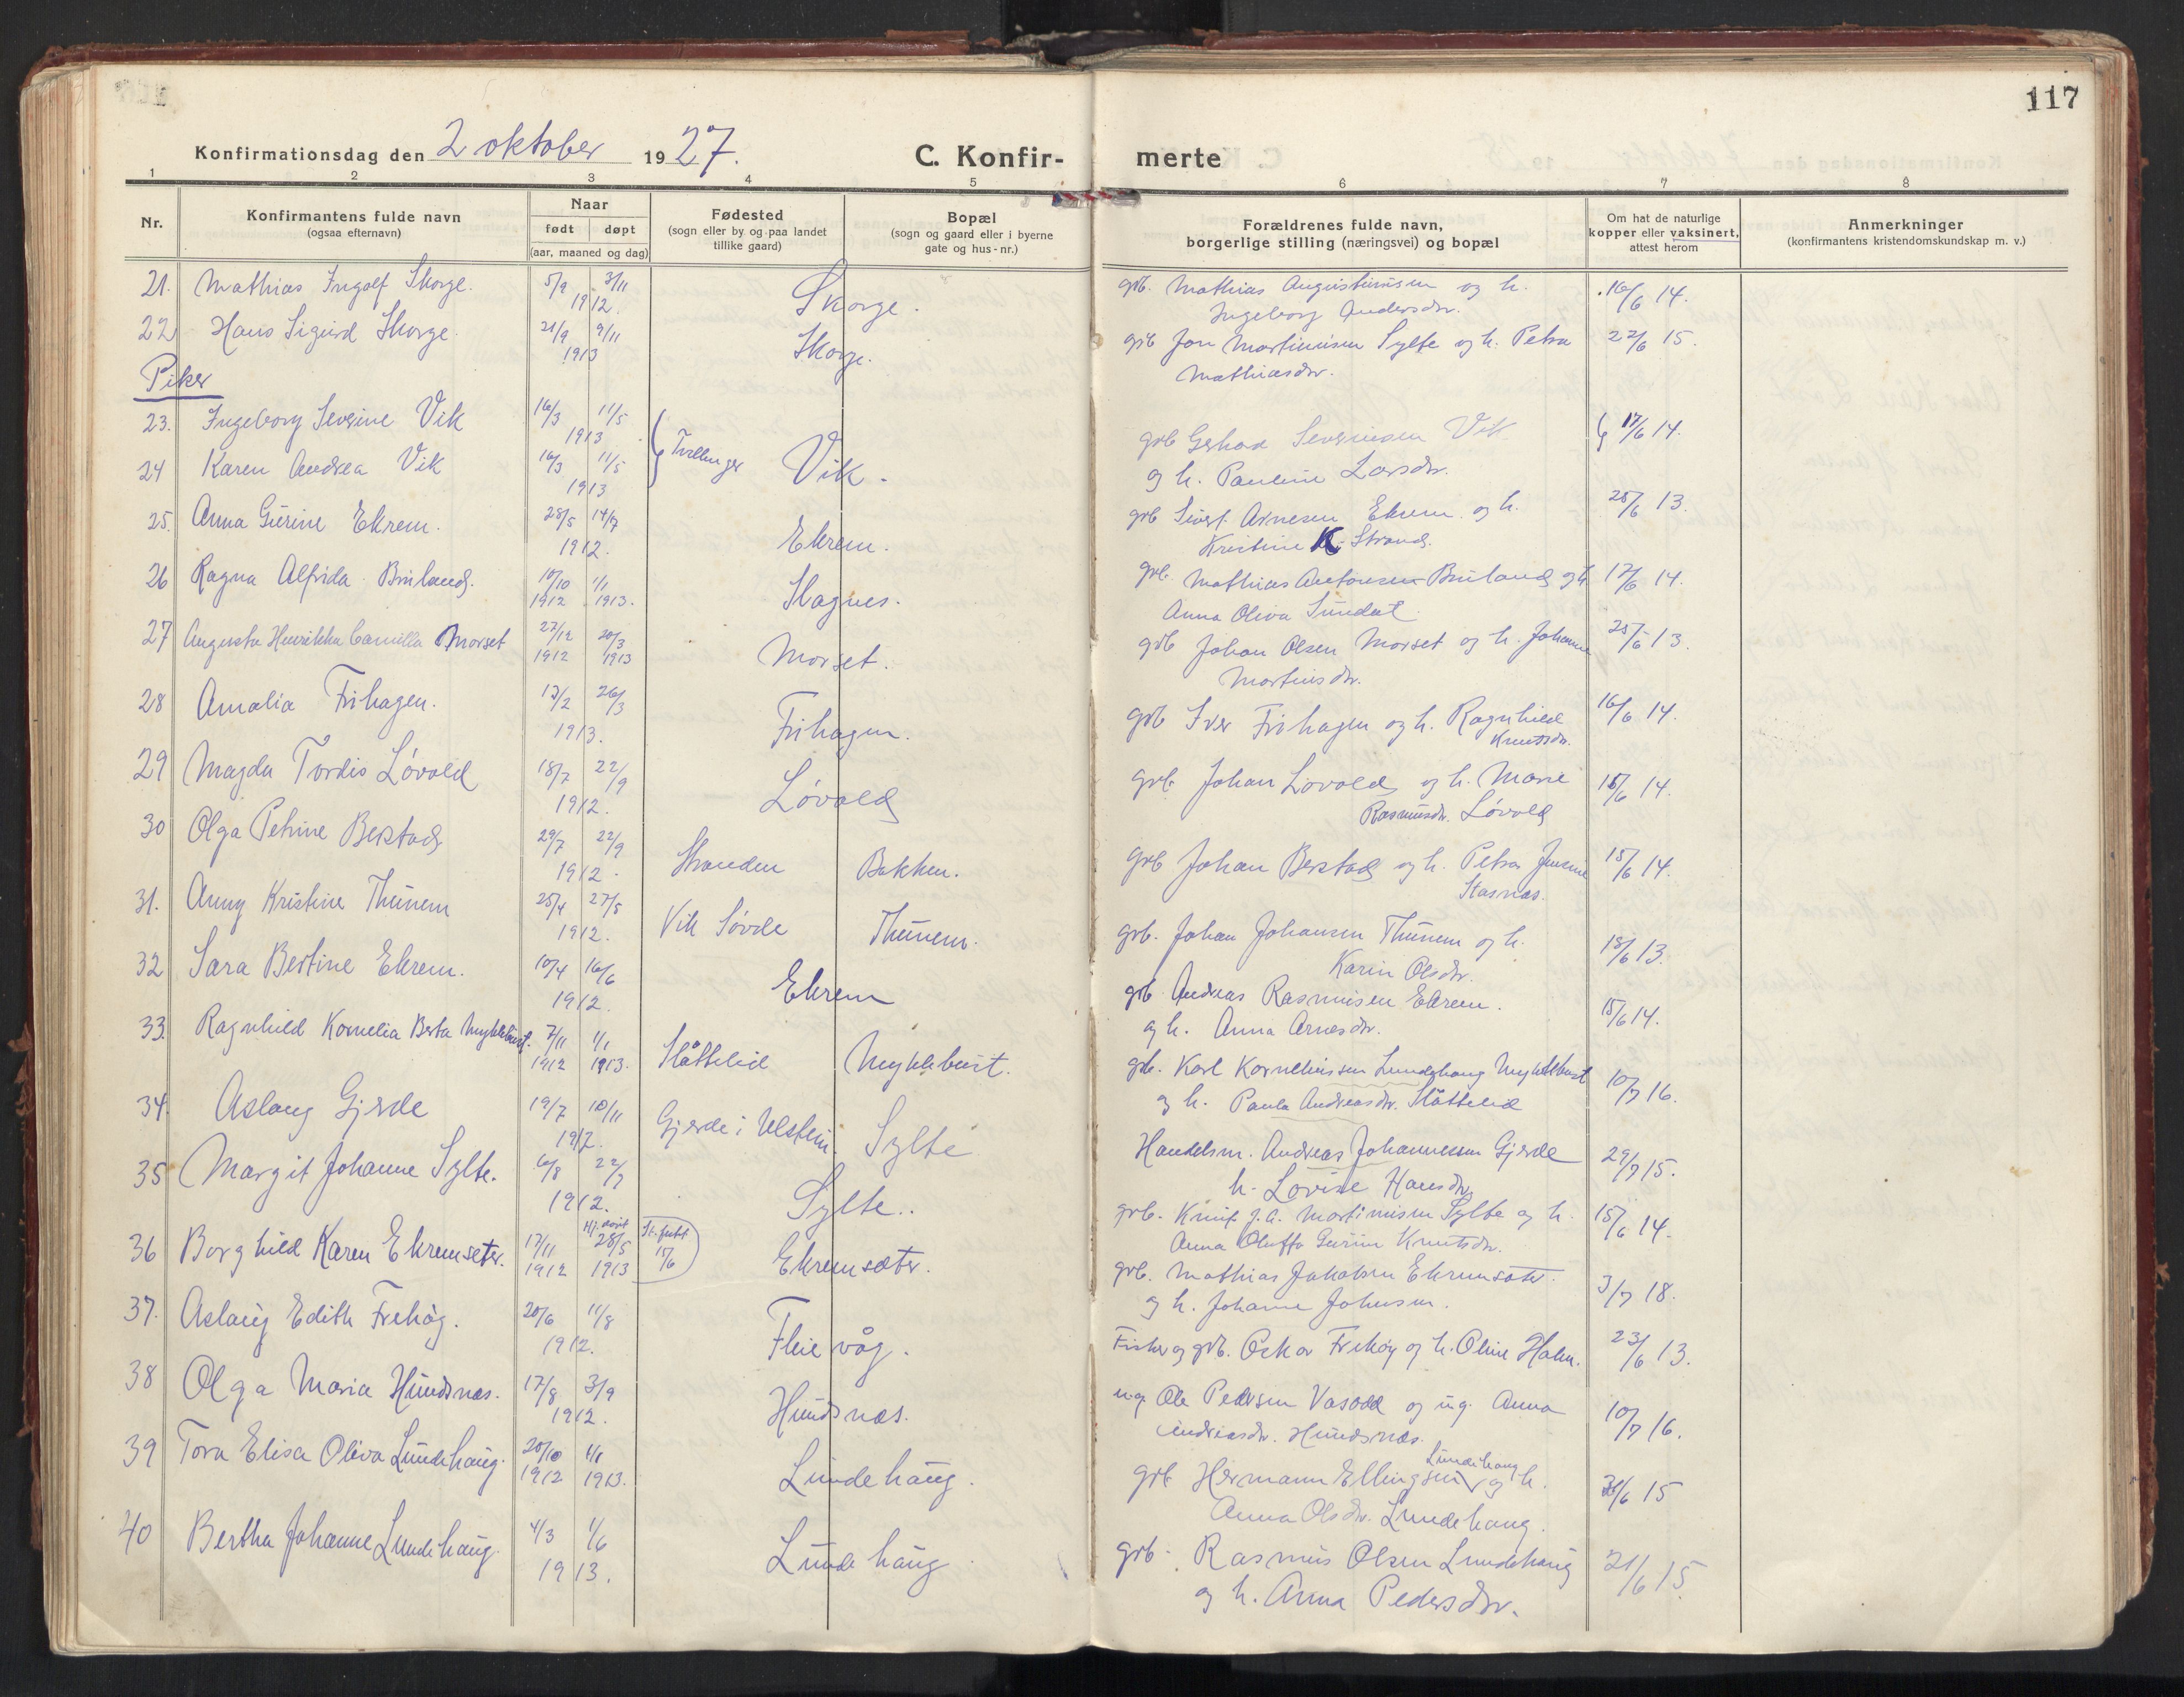 117
Konfirmationsdag den 2 oktober 1927. C. Konfir- merte
1 2 3 4 5 6 7 8
Nr. Konfirmantens fulde navn (ogsaa efternavn) Naar født døpt (aar, maaned og dag) Fødested (sogn eller by og paa landet tillike gaard) Bopæl (sogn og gaard eller i byerne gate og hus-nr.) Forældrenes fulde navn, borgerlige stilling (næringsvei) og bopæl Om hat de naturlige kopper eller vaksinert, attest herom Anmerkninger (konfirmantens kristendomskundskap m. v.)
21. Mathias Ingolf Skorge. 5/9 3/11 1912. Skorge. grb. Mathias Augustinusen og h. 16/6 14.
Ingeborg Andersdr.
22 Hans Sigurd Skorge. 21/9 9/11 1913 Skorge. grb Jon Martinusen Sylte og h. Petra 22/6 15.
Mathiasdr.
Piker
23. Ingeborg Severine Vik 16/3 11/5 1913 Tvillinger Vik. grb Gerhard Severinsen Vik 17/6 14.
24 Karen Andrea Vik 16/3 11/5 1913 og h. Pauline Larsdr.
25. Anna Gurine Ekrem. 28/5 14/7 1912. Ekrem. grb Sivert Arnesen Ekrem og h. 25/6 13.
Kristine K. Strand.
26 Ragna Alfrida Bruland. 10/10 1/1 1912 1913. Skagnes. grb. Mathias Antonsen Bruland og h. 17/6 14.
Anna Oliva Sundal.
27 Augusta Henrikka Camilla Morset 27/12 20/3 1912 1913 Morset. grb Johan Olsen Morset og h. Johanne 25/6 13.
Martinsdr.
28 Amalia Frihagen. 13/2 26/3 1913. Frihagen. grb Iver Frihagen og h. Ragnhild 16/6 14.
Knutsdr.
29 Magda Tordis Løvold 18/7 22/9 1912. Løvold grb. Johan Løvold og h. Marie 16/6 14.
Rasmusdr. Løvold
30 Olga Petrine Berstad 29/7 22/9 1912. Stranden Bakken. grb Johan Berstad og h. Petra Jensine 15/6 14.
Stasnæs.
31. Anny Kristine Thunem 25/4 27/5 1912. Vik Søvde Thunem. grb. Johan Johansen Thunem og h. 18/6 13.
Karin Olsdr.
32 Sara Bertine Ekrem. 10/4 16/6 1912. Ekrem grb. Andreas Rasmusen Ekrem. 15/6 14.
og h. Anna Arnesdr.
33. Ragnhild Kornelia Berta Myklebust. 7/11 1/1 1912 1913. Slåttelid Myklebust. grb. Karl Korneliussen Lundehaug Myklebust 10/7 16.
og h. Paula Andreasdr. Slåttelid
34. Aslaug Gjerde 19/7 10/11 1912. Gjerde i Ulstein. Sylte Handelsm. Andreas Johannessen Gjerde 29/7 15.
h. Lovise Hansdr.
35 Margit Johanne Sylte. 6/8 22/7 1912. Sylte. grb. Knut J.A. Martinusen Sylte og h. 15/6 14.
Anna Oluffa Gurine Knutsdr.
36 Borghild Karen Ekremseter. 17/11 Hj. døpt 28/5 1912 1913 St. fæst 15/6 Ekremsæter. grb. Mathias Jakobsen Ekremsæter. 3/7 18.
og h. Johanne Johnsen.
37. Aslaug Edith Frekøy. 20/6 11/8 1912. Fleirvåg. Fisker og grb. Oskar Frekøy og h. Oline Holm. 23/6 13.
38 Olga Maria Hundsnæs. 17/8 3/9 1912. Hundsnæs. ug. Ole Pedersen Vasodd og ug. Anna 10/7 16.
Andreasdr. Hundsnæs.
39 Tora Elisa Oliva Lundehaug. 20/10 1/1 1912 1913. Lundehaug. grb Hermann Ellingsen Lundehaug og h. 21/6 15
Anna Olsdr. Lundehaug.
40 Bertha Johanne Lundehaug. 4/3 1/6 1913. Lundehaug. grb. Rasmus Olsen Lundehaug 21/6 15.
og h. Anna Pedersdr.